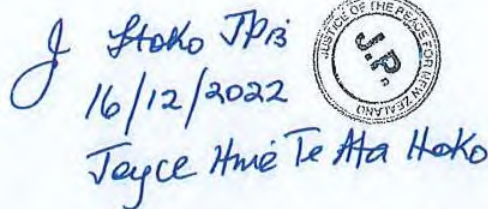 J Hoko JP
16/12/2022
Joyce Te Ata Hoko
JUSTICE OF THE PEACE FOR NEW ZEALAND
J.P.